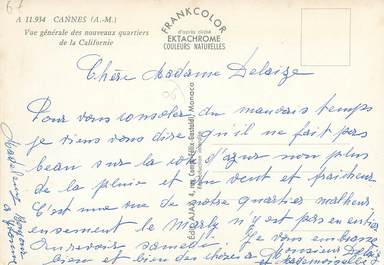 67
A 11.934 CANNES (A.-M.)
Vue générale des nouveaux quartiers
de la Californie
FRANKCOLOR
d'après cliché
EKTACHROME
COULEURS NATURELLES
Chère Madame Delaize
Pour vous consoler du mauvais temps
je viens vous dire qu'il ne fait pas
beau sur la côte d'azur non plus
de la pluie et du vent et fraicheur
C'est une vue de notre quartier malheur
eusement le Marly n'y est pas en entier
Au revoir samedi. Je vous embrasse
bien et bien des choses à Monsieur Delaize
et Mademoiselle
Edit. AJAX, 4, rue Comte-Félix-Gastaldi, Monaco